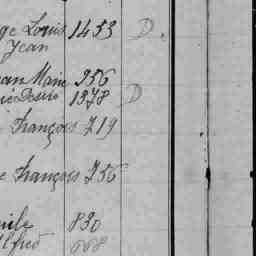 ge Louis 1453 D.
Jean
ean Marie 956
ie Désiré 1378 D
François 719
e François 756
mile 830
Alfred 668